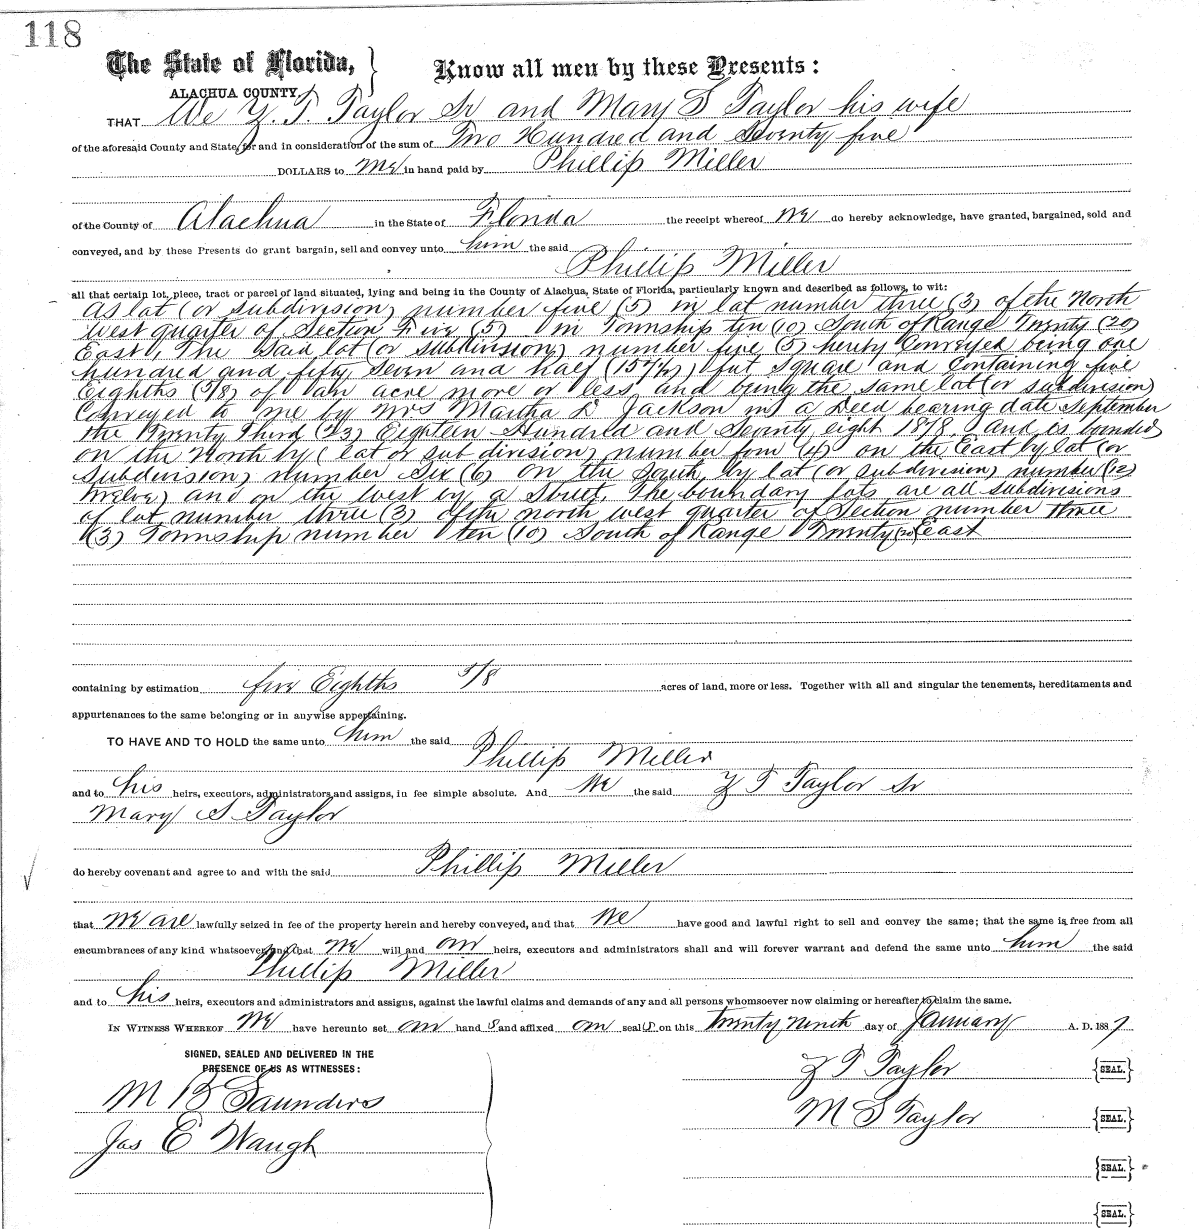 118
The State of Florida, } Know all men by these Presents:
ALACHUA COUNTY,
THAT We Z. T. Taylor Sr and Mary S Taylor his wife
of the aforesaid County and State, for and in consideration of the sum of Two Hundred and Seventy five
DOLLARS to we in hand paid by Phillip Miller
of the County of Alachua in the State of Florida the receipt whereof we do hereby acknowledge, have granted, bargained, sold and
conveyed, and by these Presents do grant bargain, sell and convey unto him the said
Phillip Miller
all that certain lot, piece, tract or parcel of land situated, lying and being in the County of Alachua, State of Florida, particularly known and described as follows, to wit:
As lot (or subdivision) number five (5) in lot number three (3) of the North
West quarter of Section Five (5) in Township ten (10) South of Range Twenty (20)
East, The said lot (or subdivision) number five (5) hereby Conveyed being one
hundred and fifty seven and half (157½) feet square and Containing five
Eighths (5/8) of an acre more or less and being the same lot (or subdivision)
Conveyed to me by Mrs Martha L Jackson in a Deed bearing date September
the Twenty Third (23) Eighteen Hundred and Seventy eight 1878 and is bounded
on the North by (lot or sub division) number four (4) on the East by lot (or
subdivision) number Six (6) on the South by lot (or subdivision) number (12)
twelve) and on the West by a Street. The boundary lots are all subdivisions
of lot number three (3) of the north west quarter of Section number three
(3) Township number ten (10) South of Range Twenty (20) East
containing by estimation five Eighths 5/8 acres of land, more or less. Together with all and singular the tenements, hereditaments and
appurtenances to the same belonging or in anywise appertaining.
TO HAVE AND TO HOLD the same unto him the said
Phillip Miller
and to his heirs, executors, administrators and assigns, in fee simple absolute. And We the said Z T Taylor Sr
Mary S Taylor
do hereby covenant and agree to and with the said Phillip Miller
that we are lawfully seized in fee of the property herein and hereby conveyed, and that We have good and lawful right to sell and convey the same; that the same is free from all
encumbrances of any kind whatsoever, and that we will and our heirs, executors and administrators shall and will forever warrant and defend the same unto him the said
Phillip Miller
and to his heirs, executors and administrators and assigns, against the lawful claims and demands of any and all persons whomsoever now claiming or hereafter to claim the same.
IN WITNESS WHEREOF We have hereunto set our hand s and affixed our seal s on this twenty ninth day of January A. D. 1887
SIGNED, SEALED AND DELIVERED IN THE
PRESENCE OF US AS WITNESSES:
Z T Taylor {SEAL.}
M B Saunders
M S Taylor {SEAL.}
Jas E Waugh
{SEAL.}
{SEAL.}